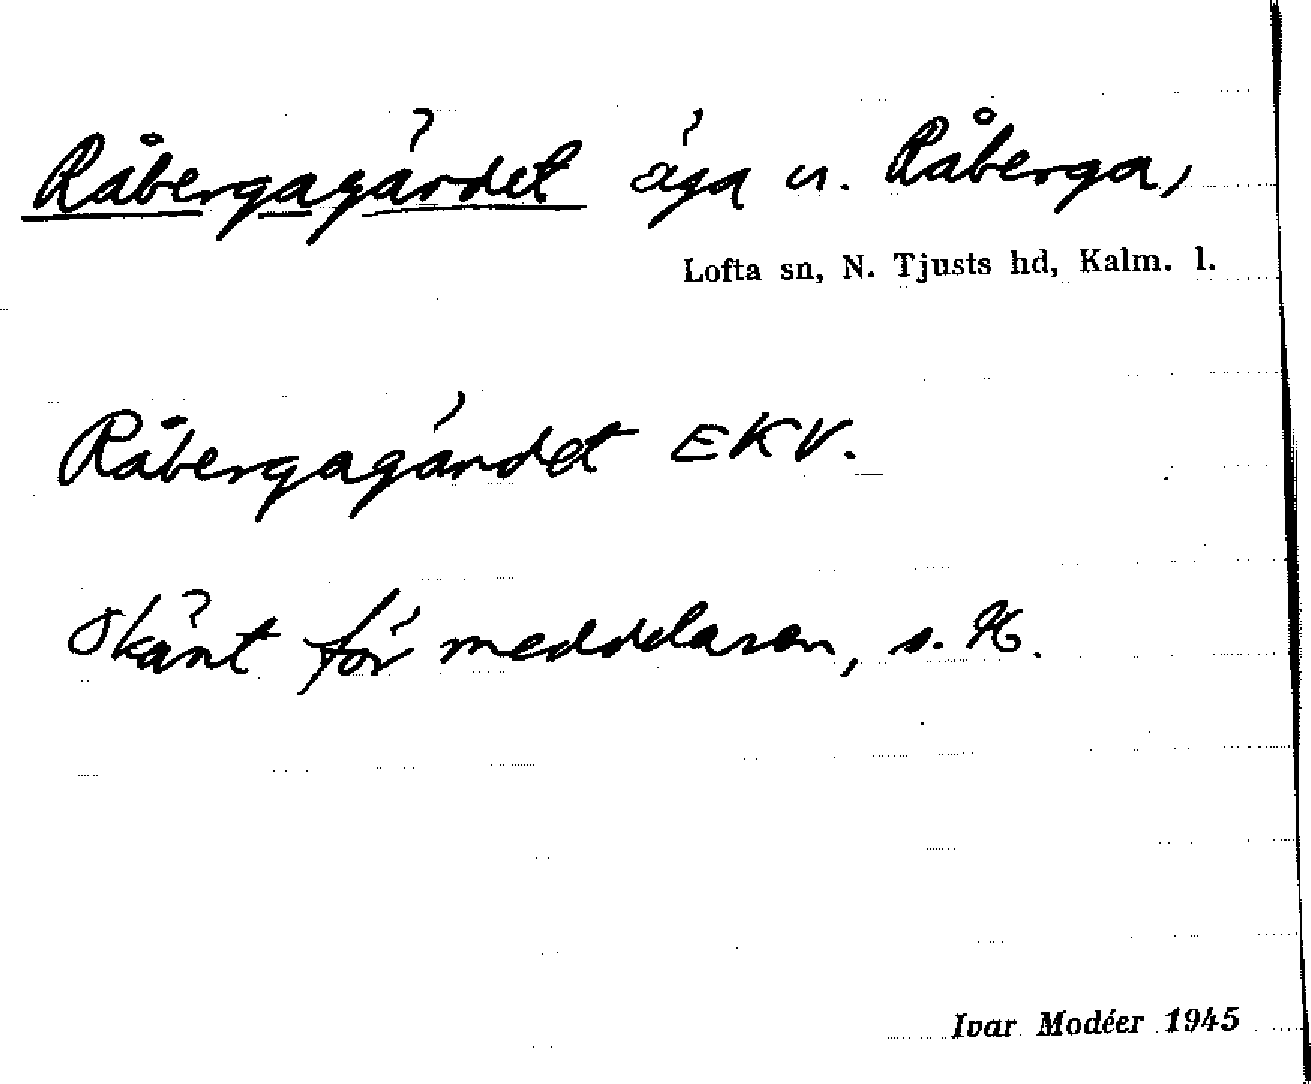 Råbergagärdet äga u. Råberga,
Lofta sn, N. Tjusts hd, Kalm. l.
Råbergagärdet EKV.
Okänt för meddelaren, s. K.
Ivar Modéer 1945